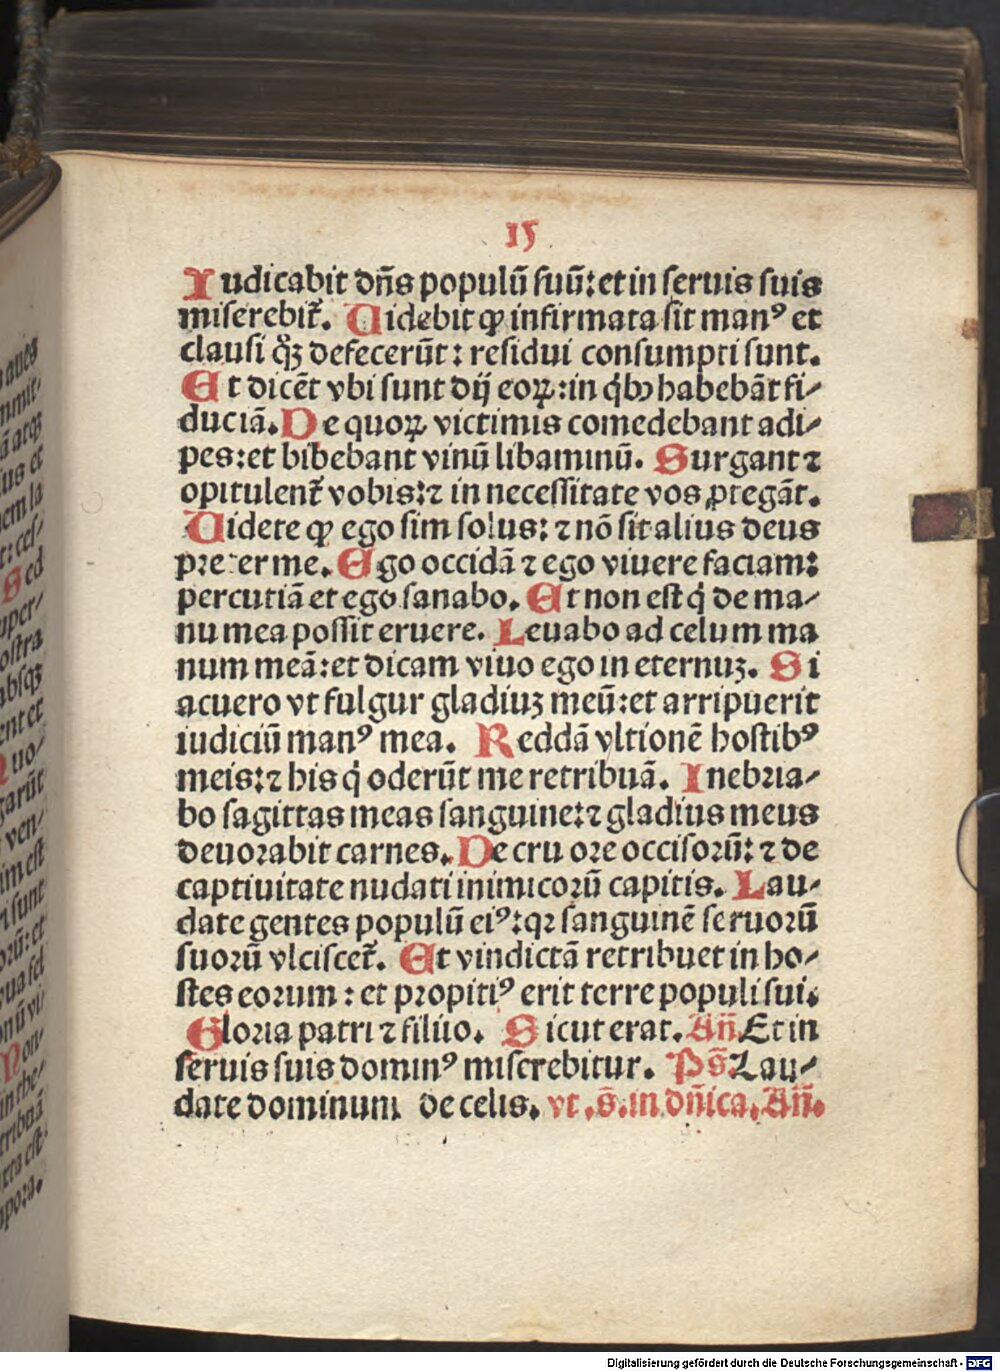 15
Iudicabit dn̄s populū suū: et in seruis suis
miserebit᷑. Uidebit ꝙ infirmata sit man⁹ et
clausi qꝫ defecerūt: residui consumpti sunt.
Et dicēt vbi sunt dij eoꝝ: in qͥbꝰ habebāt fi⸗
duciā. De quoꝝ victimis comedebant adi⸗
pes: et bibebant vinū libaminū. Surgant ⁊
opitulent᷑ vobis: ⁊ in necessitate vos ꝓtegāt.
Uidete ꝙ ego sim solus: ⁊ nō sit alius deus
preter me. Ego occidā ⁊ ego viuere faciam:
percutiā et ego sanabo. Et non est qͥ de ma⸗
nu mea possit eruere. Leuabo ad celum ma
num meā: et dicam viuo ego in eternuꝫ. Si
acuero vt fulgur gladiuꝫ meū: et arripuerit
iudiciū man⁹ mea. Reddā vltionē hostib⁹
meis: ⁊ his qͥ oderūt me retribuā. Inebria⸗
bo sagittas meas sanguine: ⁊ gladius meus
deuorabit carnes. De cruore occisorū: ⁊ de
captiuitate nudati inimicorū capitis. Lau⸗
date gentes populū ei⁹: qꝛ sanguinē seruorū
suorū vlciscet᷑. Et vindictā retribuet in ho⸗
stes eorum: et propiti⁹ erit terre populi sui.
Gloria patri ⁊ filiio. Sicut erat. An̄. Et in
seruis suis domin⁹ miserebitur. Ps̄. Lau⸗
date dominum de celis. vt .s̄. in dn̄ica. An̄.
Digitalisierung gefördert durch die Deutsche Forschungsgemeinschaft - DFG